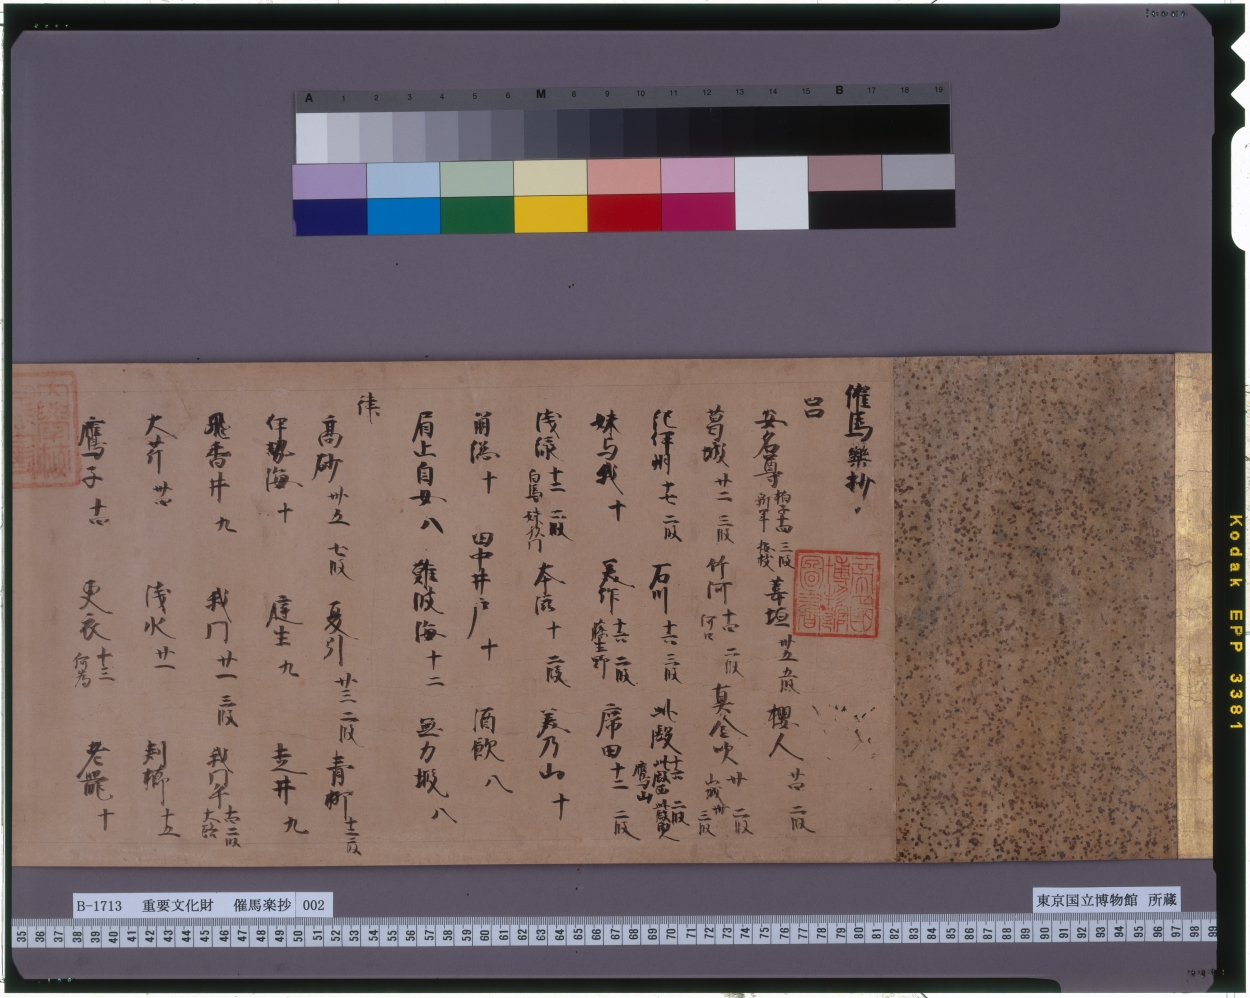 A 1 2 3 4 5 6 M 8 9 10 11 12 13 14 15 B 17 18 19
催馬樂抄
呂
安名尊 三段
葛城 廿二 三段 竹河 二段 真金吹 廿 二段
紀伊州 二段 石川 三段 此殿 二段
妹与我 十 美作 二段 席田 十二 二段
浅緑 十二 二段 本滋 十 二段 美乃山 十
葦垣 卅五 五段 櫻人 二段
鷹山
藤生野
山城
河口
白馬
妹門
十 田中井戸 十 酒飲 八
眉止自女 八 難波海 十二 無力蝦 八
律
高砂 卅五 七段 夏引 廿三 二段 青柳 十二 二段
伊勢海 十 庭生 九 走井 九
飛香井 九 我門 廿一 三段 我門乎 二段
大芹 浅水 廿一 刺櫛 十五
鷹子 更衣 十三 何為 老鼠 十
帝國博物館圖書
Kodak EPP 3381
B-1713 重要文化財 催馬楽抄 002
東京国立博物館 所蔵
35 36 37 38 39 40 41 42 43 44 45 46 47 48 49 50 51 52 53 54 55 56 57 58 59 60 61 62 63 64 65 66 67 68 69 70 71 72 73 74 75 76 77 78 79 80 81 82 83 84 85 86 87 88 89 90 91 92 93 94 95 96 97 98 99